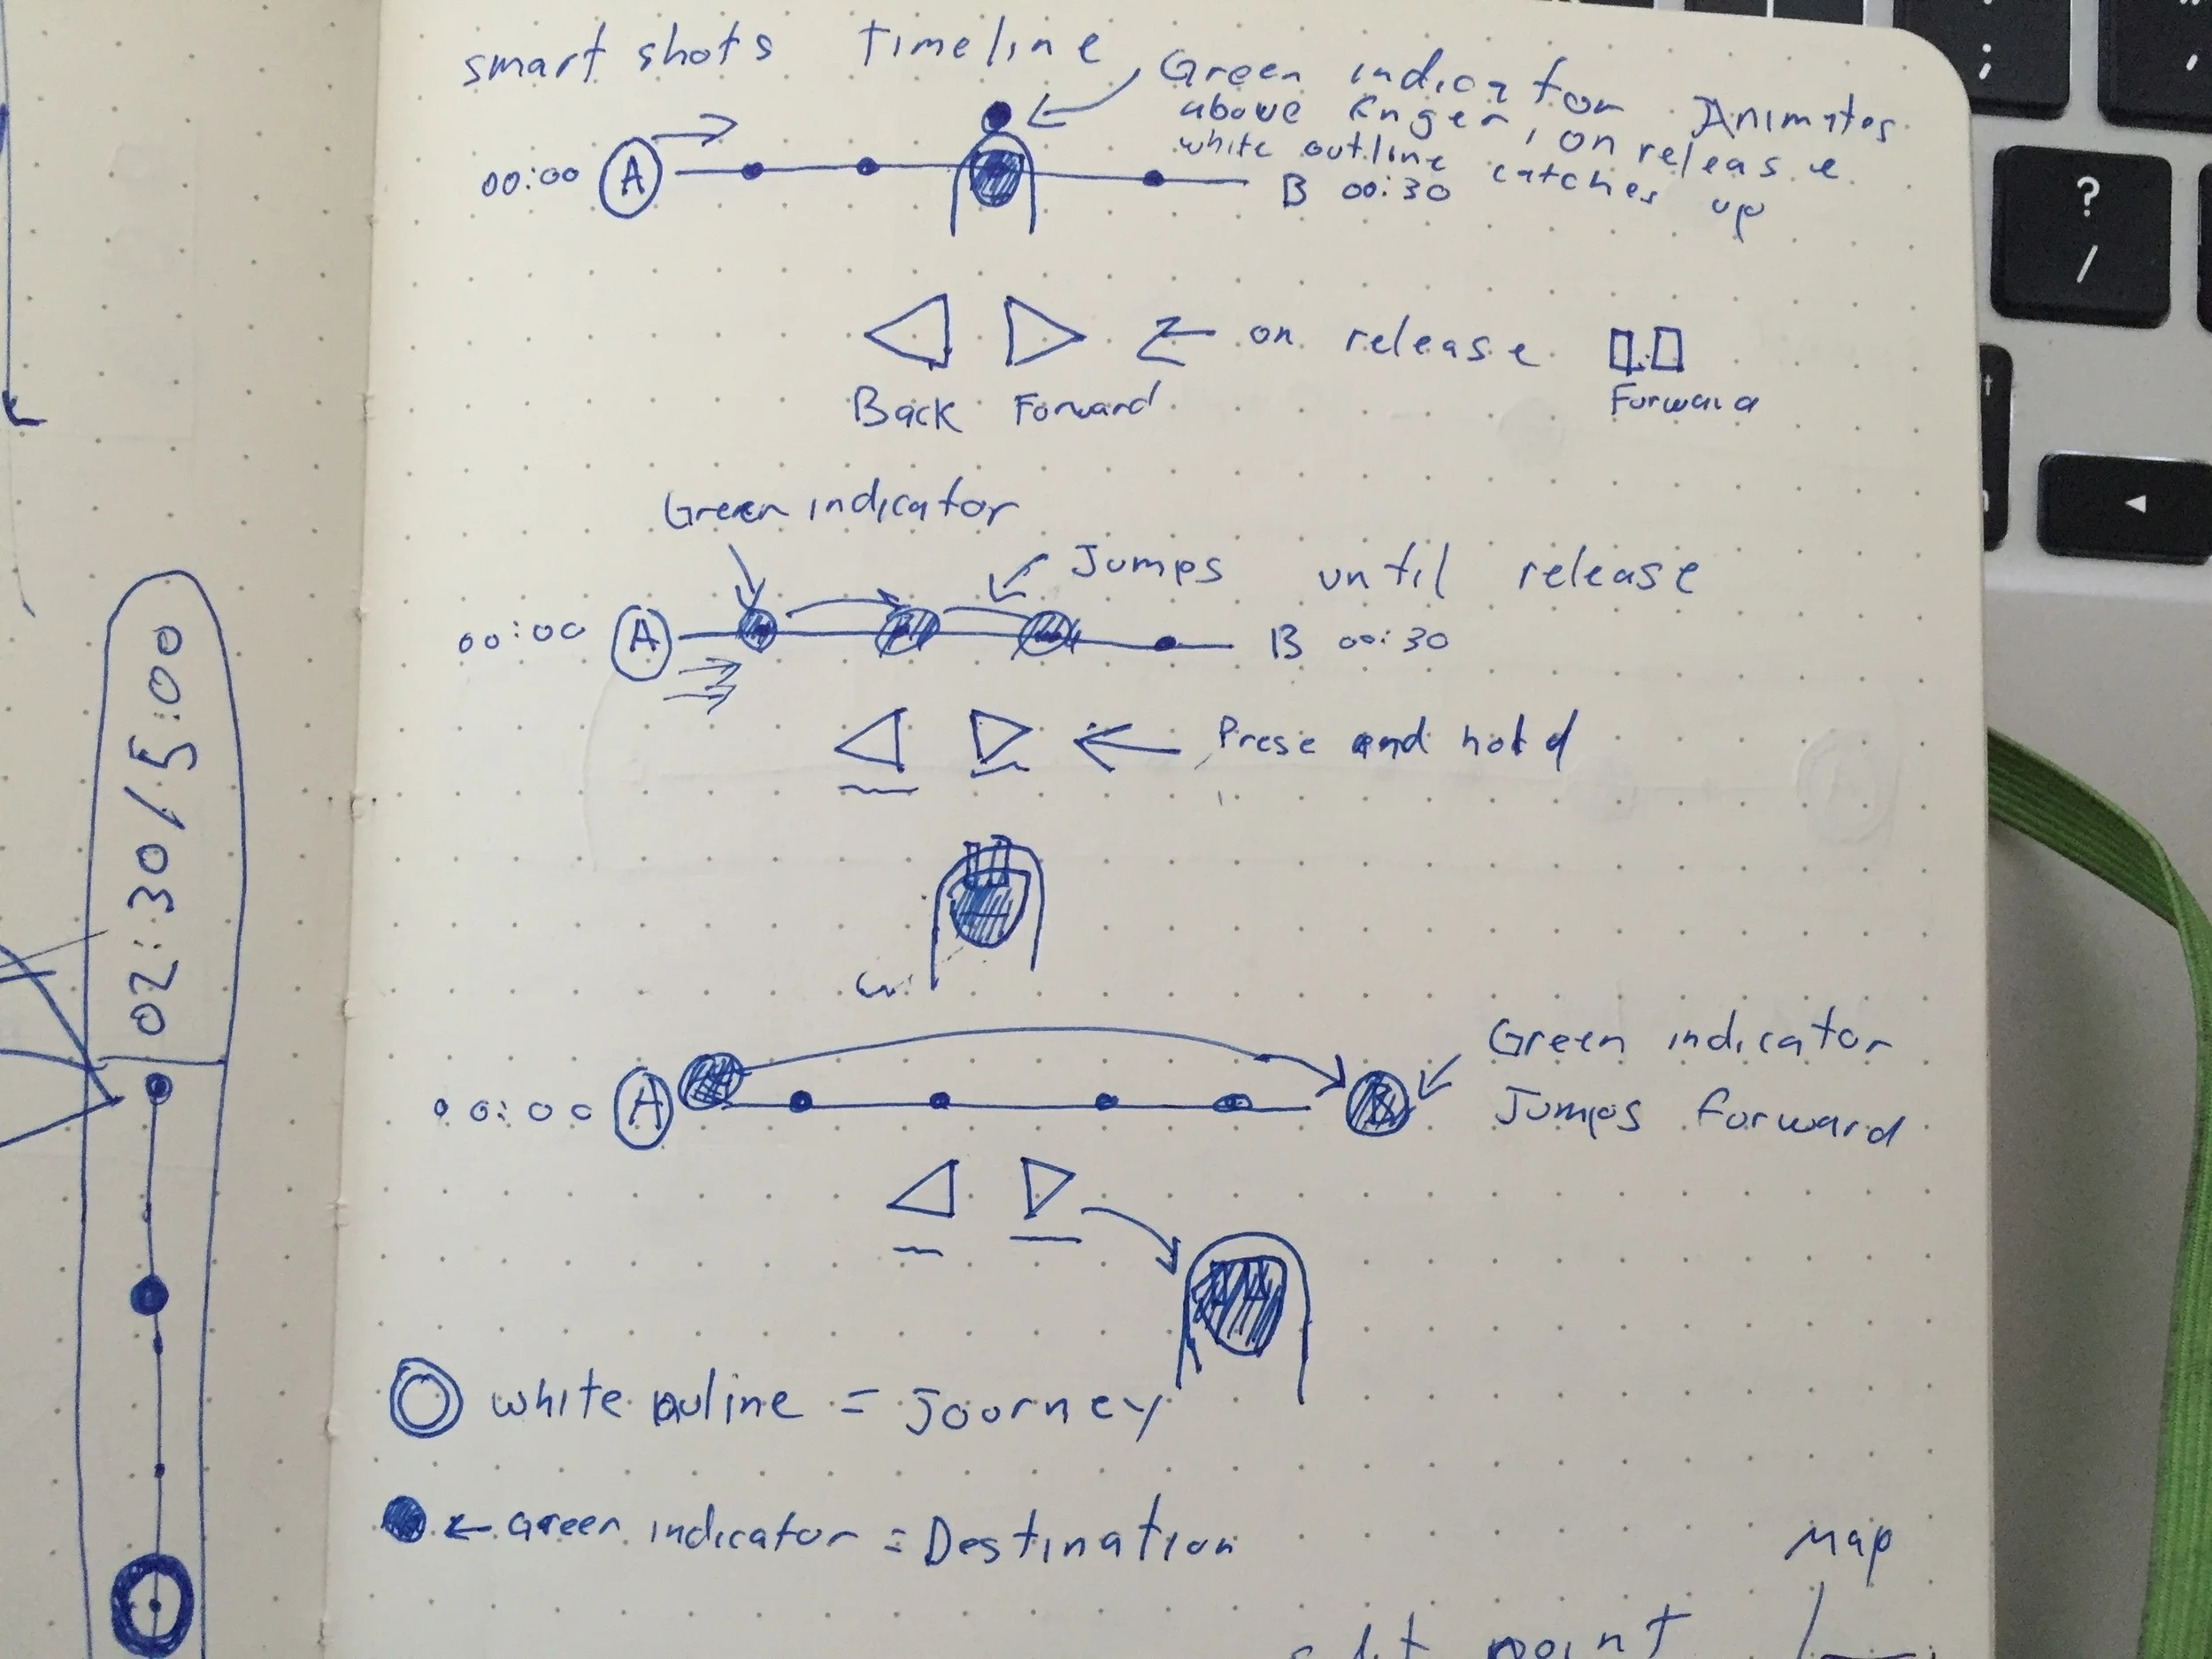 smart shots Timeline
Green indicator Animates
above finger, on release
white outline catches up
00:00 A B 00:30
on release
Back Forward Forward
Green indicator
Jumps until release
00:00 A B 00:30
Press and hold
Green indicator
Jumps forward
00:00 A B
white ouline = Journey
Green indicator = Destination
Map
point
02:30/5:00
?
/
;